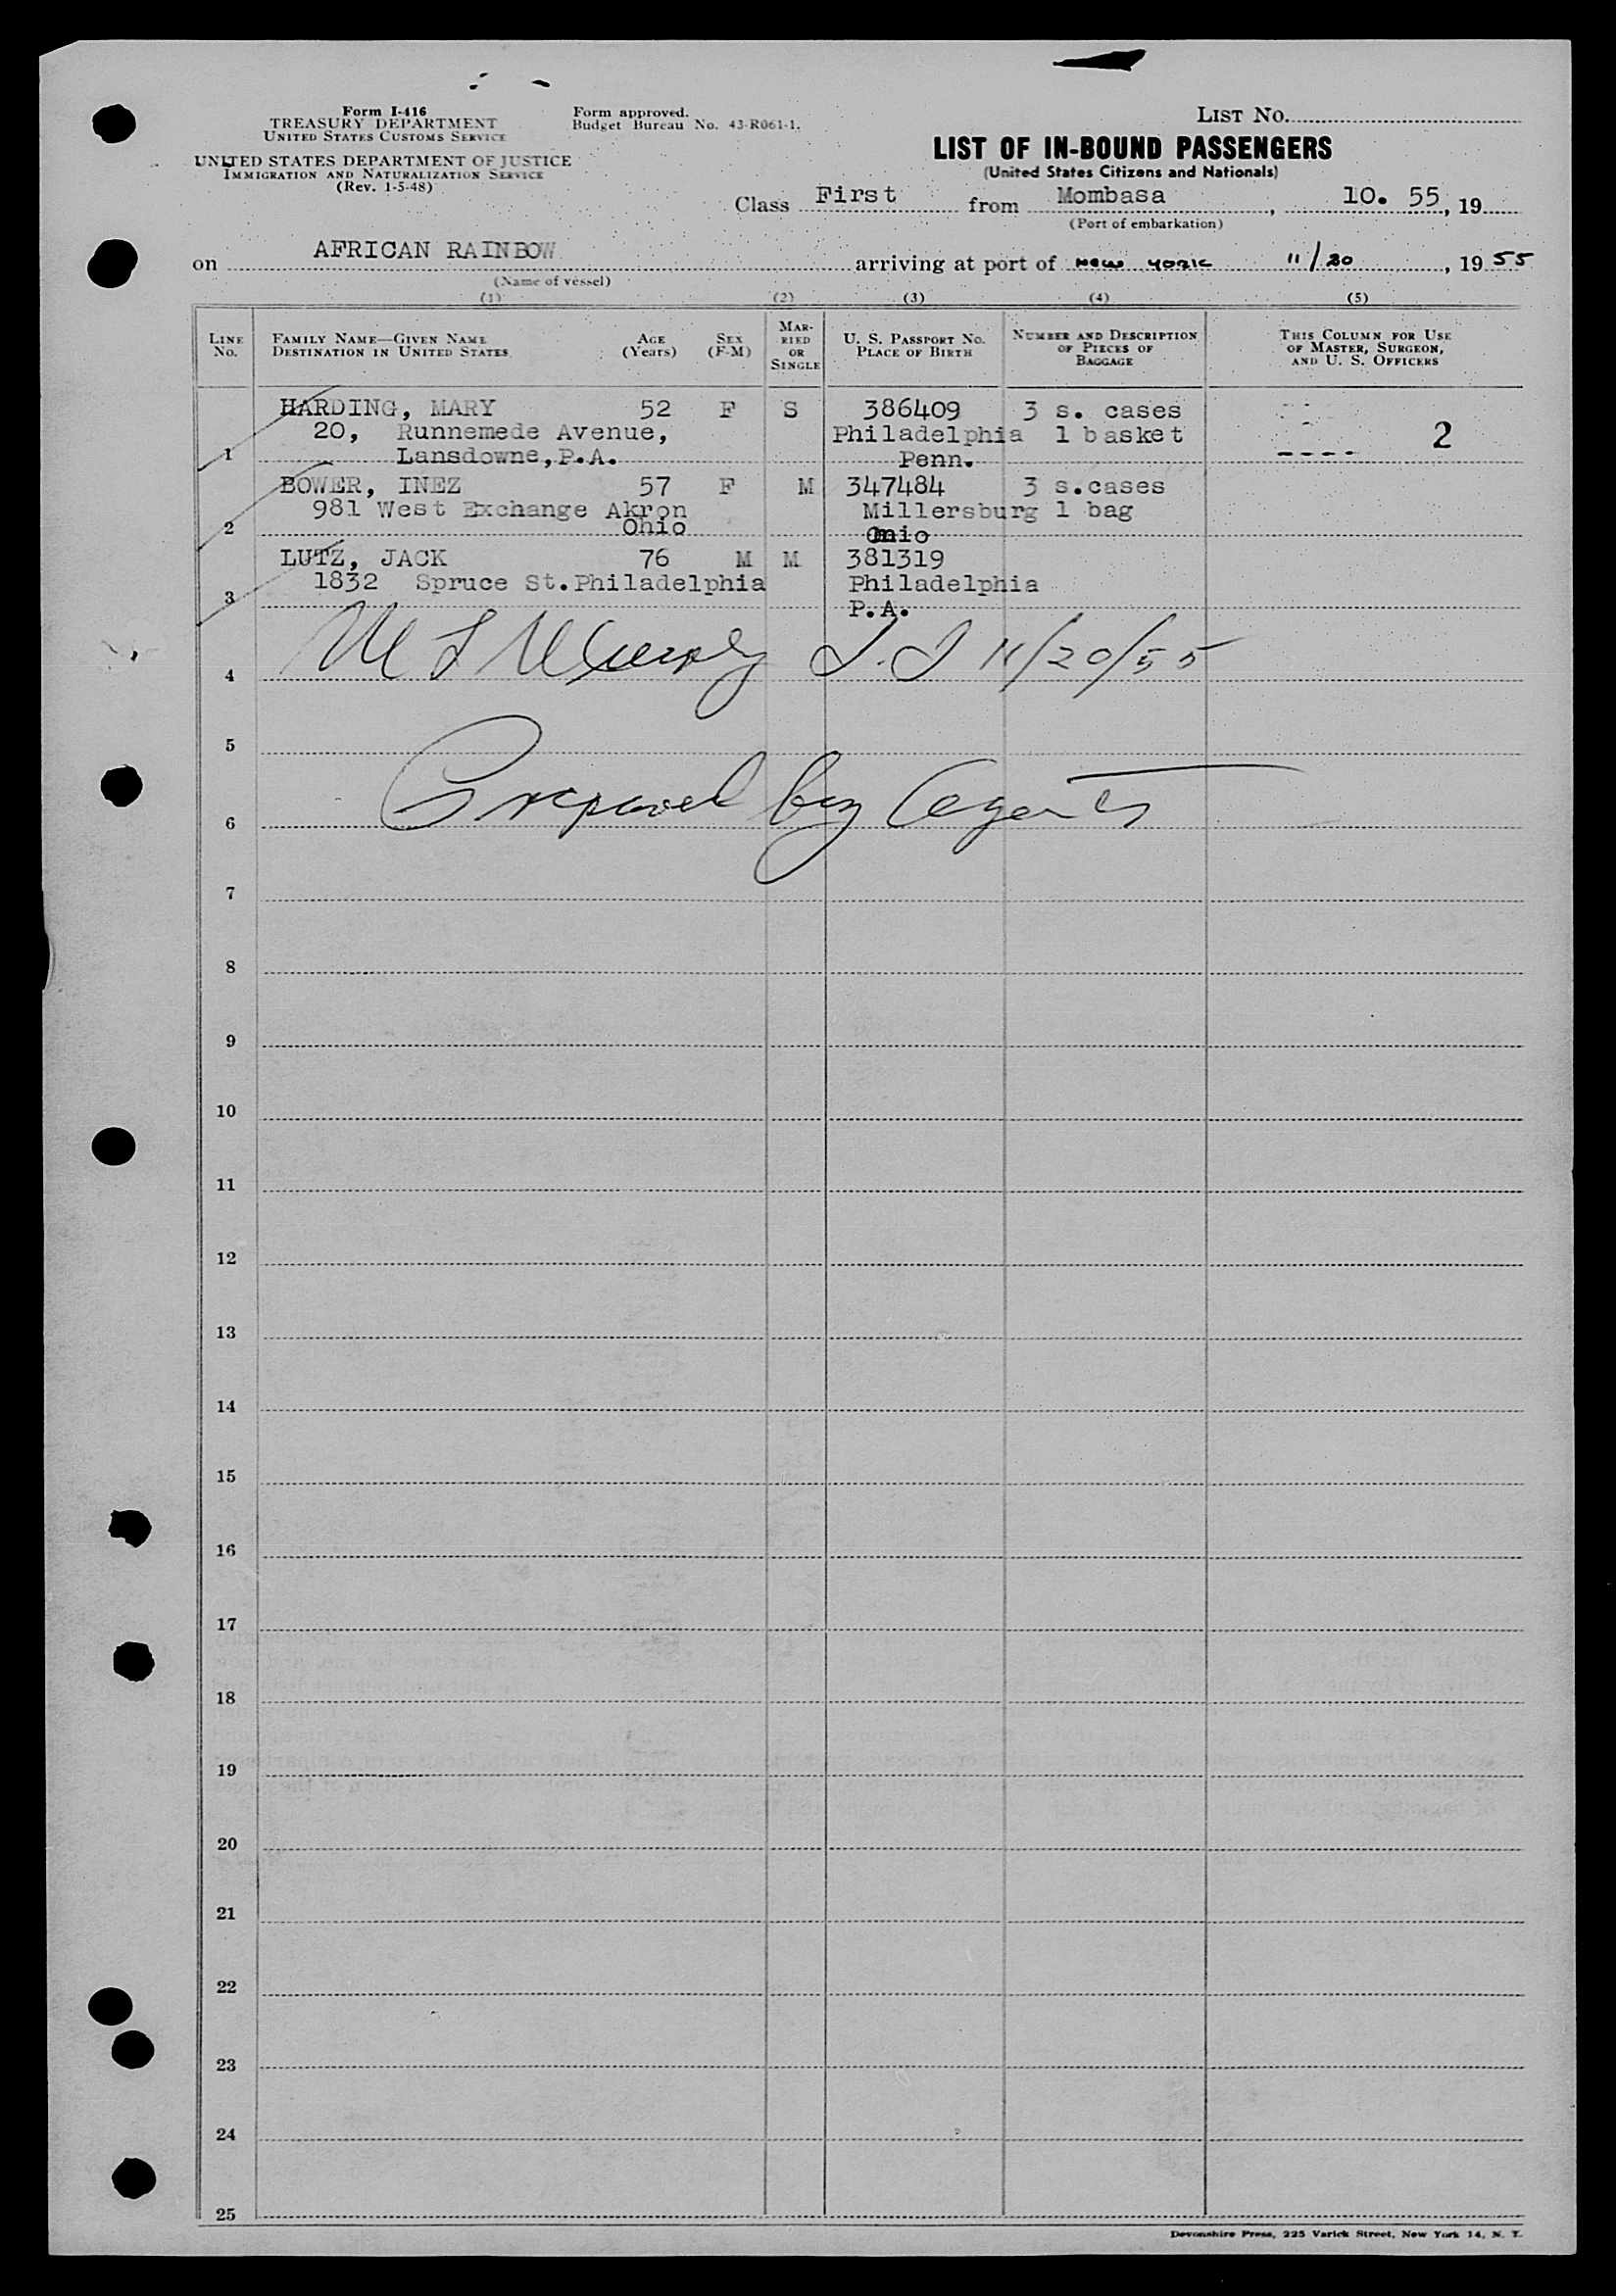 Form I-416
TREASURY DEPARTMENT
UNITED STATES CUSTOMS SERVICE
UNITED STATES DEPARTMENT OF JUSTICE
IMMIGRATION AND NATURALIZATION SERVICE
(Rev. 1-5-48)
Form approved.
Budget Bureau No. 43-R061-1.
LIST NO.
LIST OF IN-BOUND PASSENGERS
(United States Citizens and Nationals)
Class First from Mombasa, 10. 55, 19
(Port of embarkation)
on AFRICAN RAINBOW arriving at port of New York 11/20, 19 55
(Name of vessel)
(1) (2) (3) (4) (5)
LINE NO.
FAMILY NAME—GIVEN NAME
DESTINATION IN UNITED STATES
AGE (Years)
SEX (F-M)
MARRIED OR SINGLE
U. S. PASSPORT NO.
PLACE OF BIRTH
NUMBER AND DESCRIPTION OF PIECES OF BAGGAGE
THIS COLUMN FOR USE OF MASTER, SURGEON, AND U. S. OFFICERS
HARDING, MARY 52 F S 386409 3 s. cases
20, Runnemede Avenue, Philadelphia 1 basket 2
1 Lansdowne, P.A. Penn.
BOWER, INEZ 57 F M 347484 3 s.cases
981 West Exchange Akron Millersburg 1 bag
2 Ohio Ohio
LUTZ, JACK 76 M M 381319
1832 Spruce St.Philadelphia Philadelphia
3 P.A.
4 11/20/55
5
6 Prepared by Agents
7
8
9
10
11
12
13
14
15
16
17
18
19
20
21
22
23
24
25
Devonshire Press, 225 Varick Street, New York 14, N. Y.